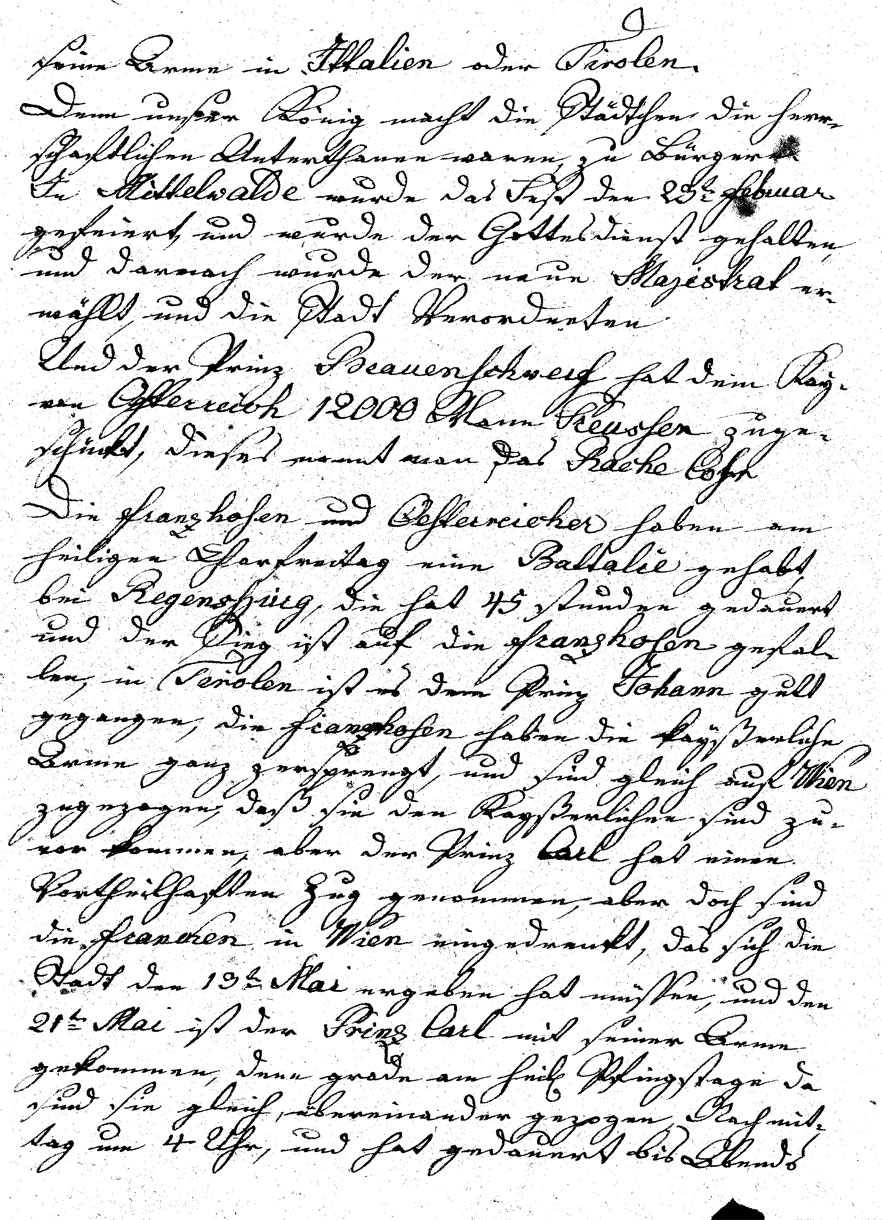 seine Arme in Ittalien oder Tirolen.
Denn unßer König macht die Städtchen die herr-
schaftlichen Unterthanen waren, zu Bürger
In Mittelwalde wurde das Fest den 23t Februar
gefeiert, und wurde der Gottesdienst gehalten,
und darnach wurde der neue Majistrat er-
wählt, und die Stadt Verordneten
Und der Prinz Brauenschweig hat dem Kay-
von Östereich 12000 Mann Preussen zuge-
schückt, dieses nennt man das Rache Cohr
Die franzhosen und Oesterreicher haben am
heiligen Charfreitag eine Battalie gehabt,
bei Regenspurg, die hat 45 stunden gedauert
und der Sieg ist auf die franzhosen gefal-
len, in Tirolen ist es dem Prinz Johann gutt
gegangen, die franzhosen haben die kayßerliche
Arme ganz zersprengt, und sind gleich auf Wien
zugezogen, daß sie den Kayßerlichen sind zu-
vor kommen, aber der Prinz Carl hat einen
Vortheilhaften Zug genommen, aber doch sind
die francken in Wien eingedrenckt, das sich die
Stadt den 13t Mai ergeben hat müssen, und den
21t Mai ist der Prinz Carl mit seiner Arme
gekommen, denn grade am heil Pfingstage da
sind sie gleich übereinander gezogen, Nach mit-
tag um 4 Uhr, und hat gedauert bis Abends